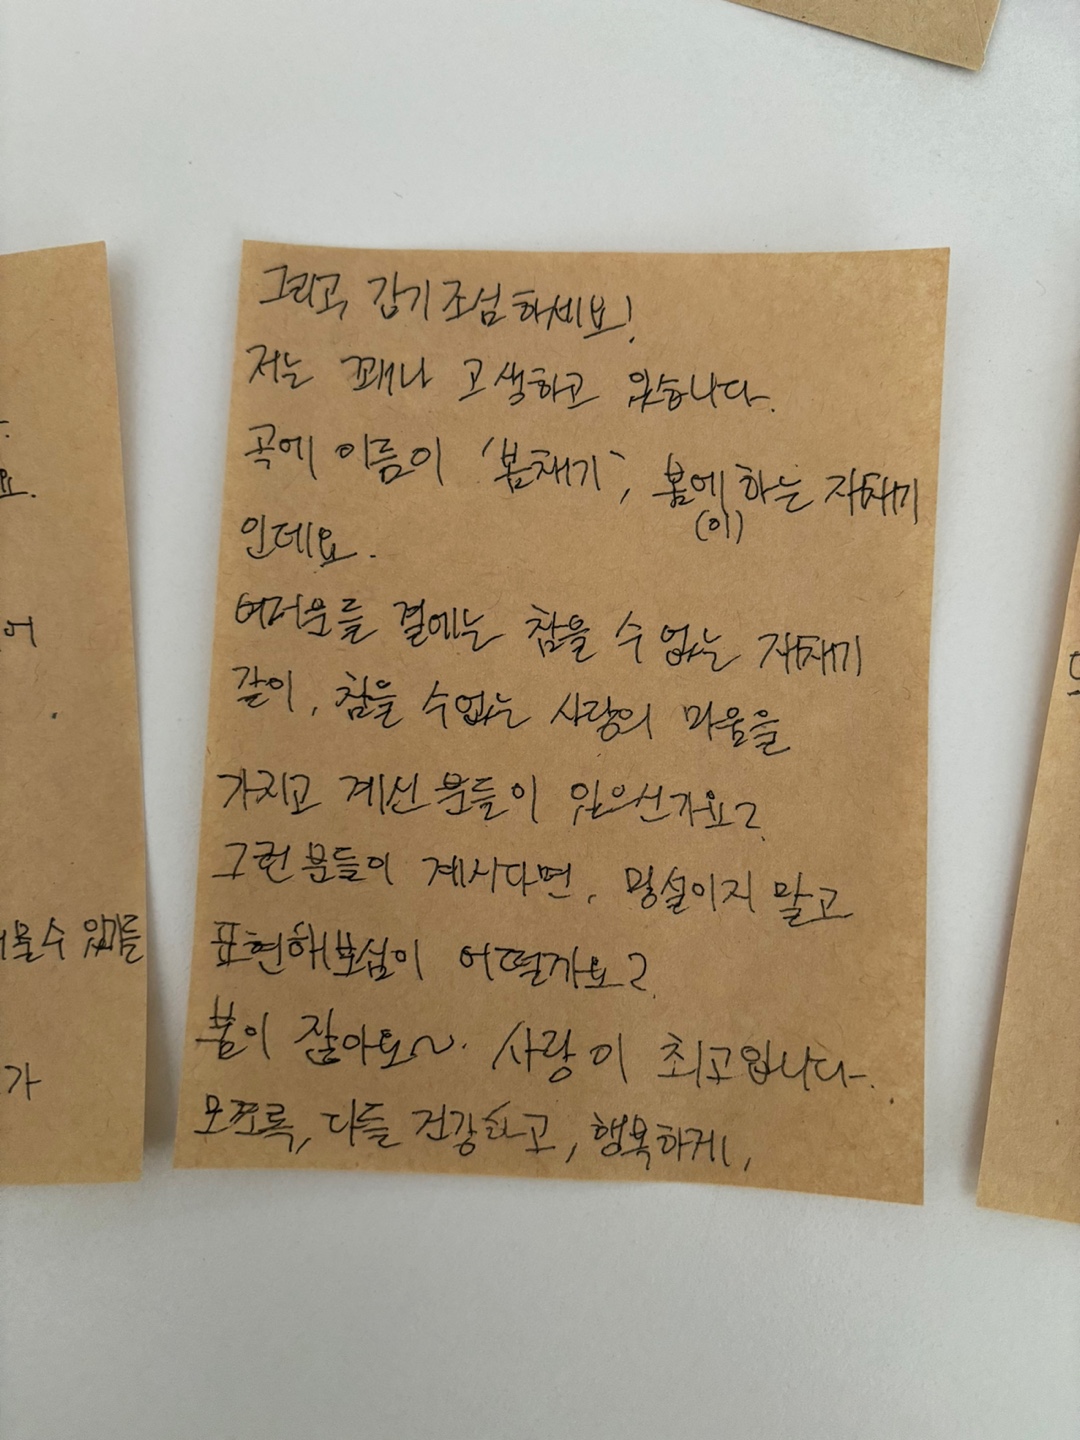 그리고, 감기 조심하세요!
저는 꽤나 고생하고 있습니다.
곡에 이름이 '봄채기', 봄에 하는 재채기
(이)
인데요.
여러분들 곁에는 참을 수 없는 재채기
같이, 참을 수 없는 사랑의 마음을
가지고 계신 분들이 있으신가요?
그런 분들이 계시다면, 망설이지 말고
표현해 보심이 어떨까요?
봄이 짧아요~. 사랑이 최고입니다.
모쪼록, 다들 건강하고, 행복하게,
요.
어
울 수 있기를
가